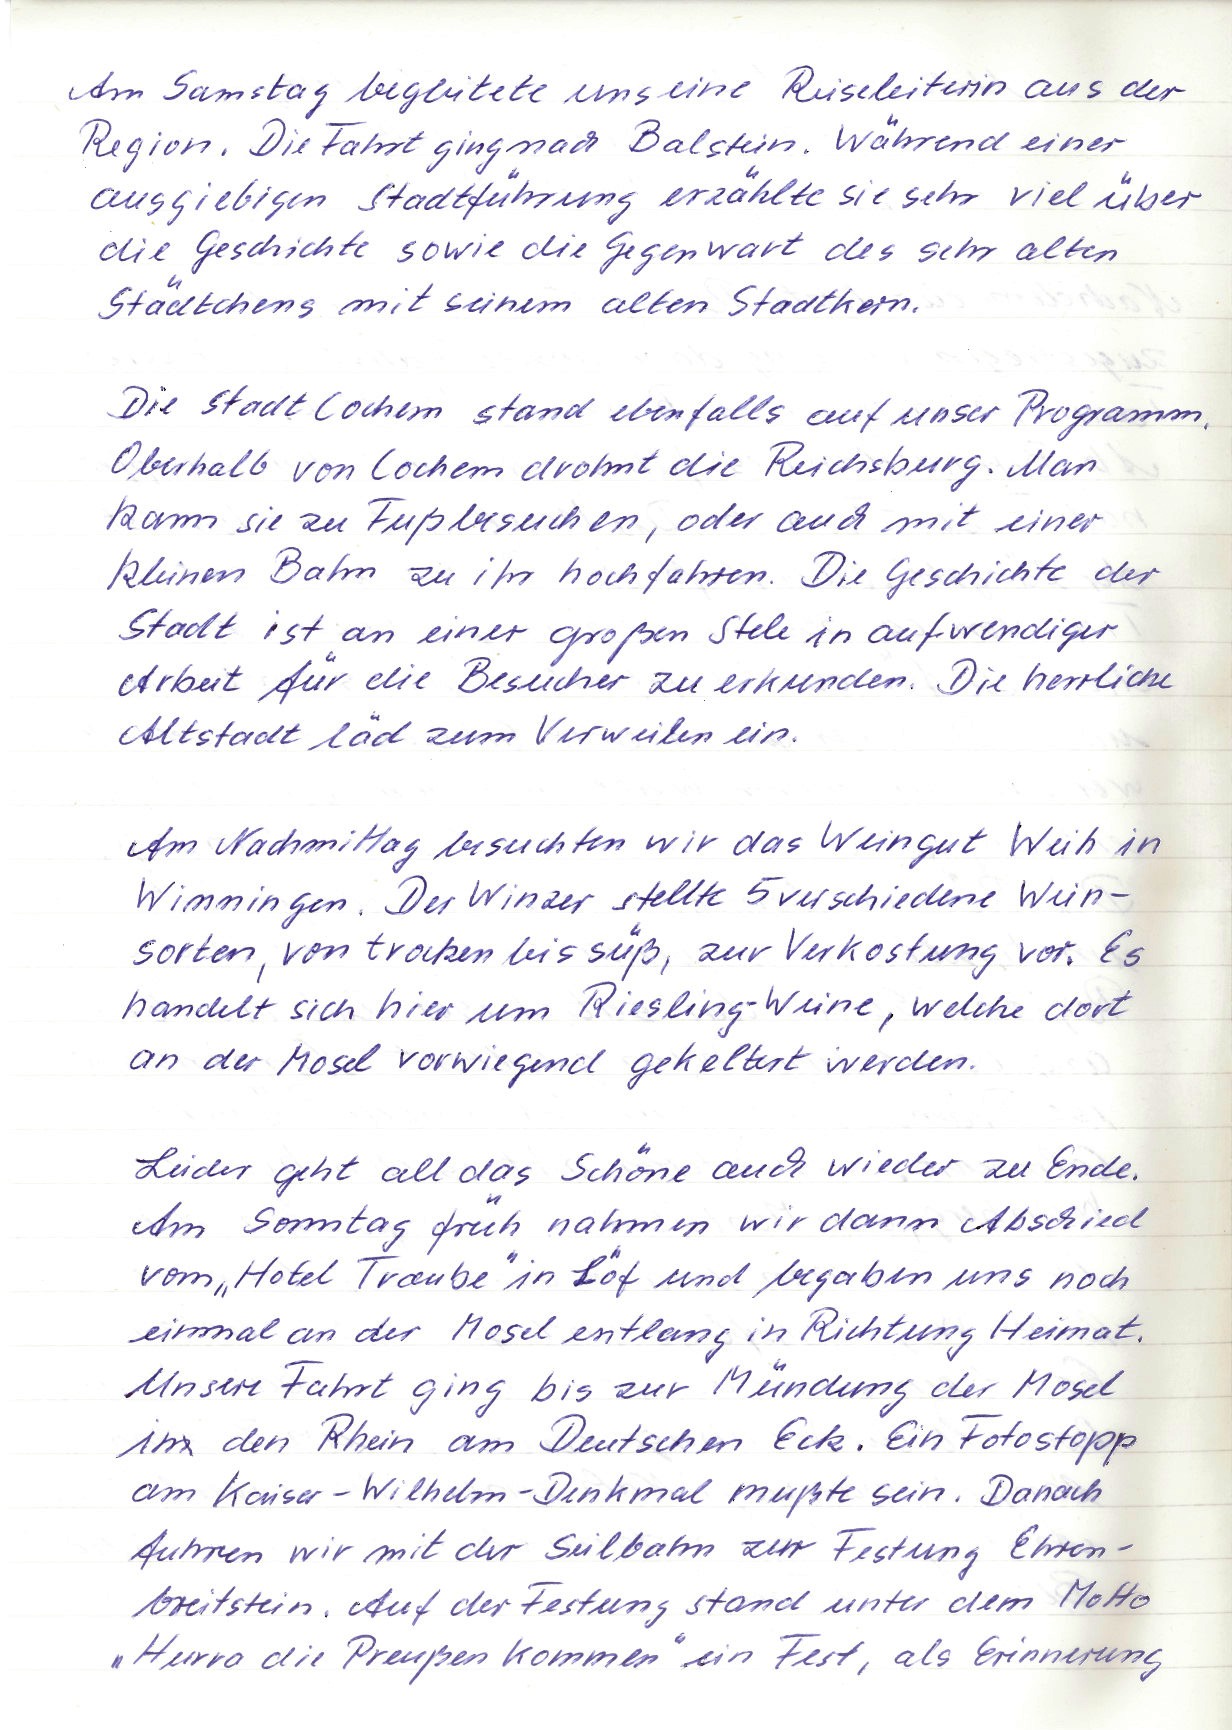 Am Samstag begleitete uns eine Reiseleiterin aus der
Region. Die Fahrt ging nach Balstein. Während einer
ausgiebigen Stadtführung erzählte sie sehr viel über
die Geschichte sowie die Gegenwart des sehr alten
Städtchens mit seinem alten Stadtkern.
Die Stadt Cochem stand ebenfalls auf unser Programm.
Oberhalb von Cochem drohnt die Reichsburg. Man
kann sie zu Fuß besuchen, oder auch mit einer
kleinen Bahn zu ihr hochfahren. Die Geschichte der
Stadt ist an einer großen Stele in aufwendiger
Arbeit für die Besucher zu erkunden. Die herrliche
Altstadt läd zum Verweilen ein.
Am Nachmittag besuchten wir das Weingut Weih in
Winningen. Der Winzer stellte 5 verschiedene Wein-
sorten, von trocken bis süß, zur Verkostung vor. Es
handelt sich hier um Riesling-Weine, welche dort
an der Mosel vorwiegend gekeltert werden.
Leider geht all das Schöne auch wieder zu Ende.
Am Sonntag früh nahmen wir dann Abschied
vom „Hotel Traube" in Löf und begaben uns noch
einmal an der Mosel entlang in Richtung Heimat.
Unsere Fahrt ging bis zur Mündung der Mosel
in den Rhein am Deutschen Eck. Ein Fotostopp
am Kaiser-Wilhelm-Denkmal mußte sein. Danach
fuhren wir mit der Seilbahn zur Festung Ehren-
breitstein. Auf der Festung stand unter dem Motto
„Hurra die Preußen kommen" ein Fest, als Erinnerung